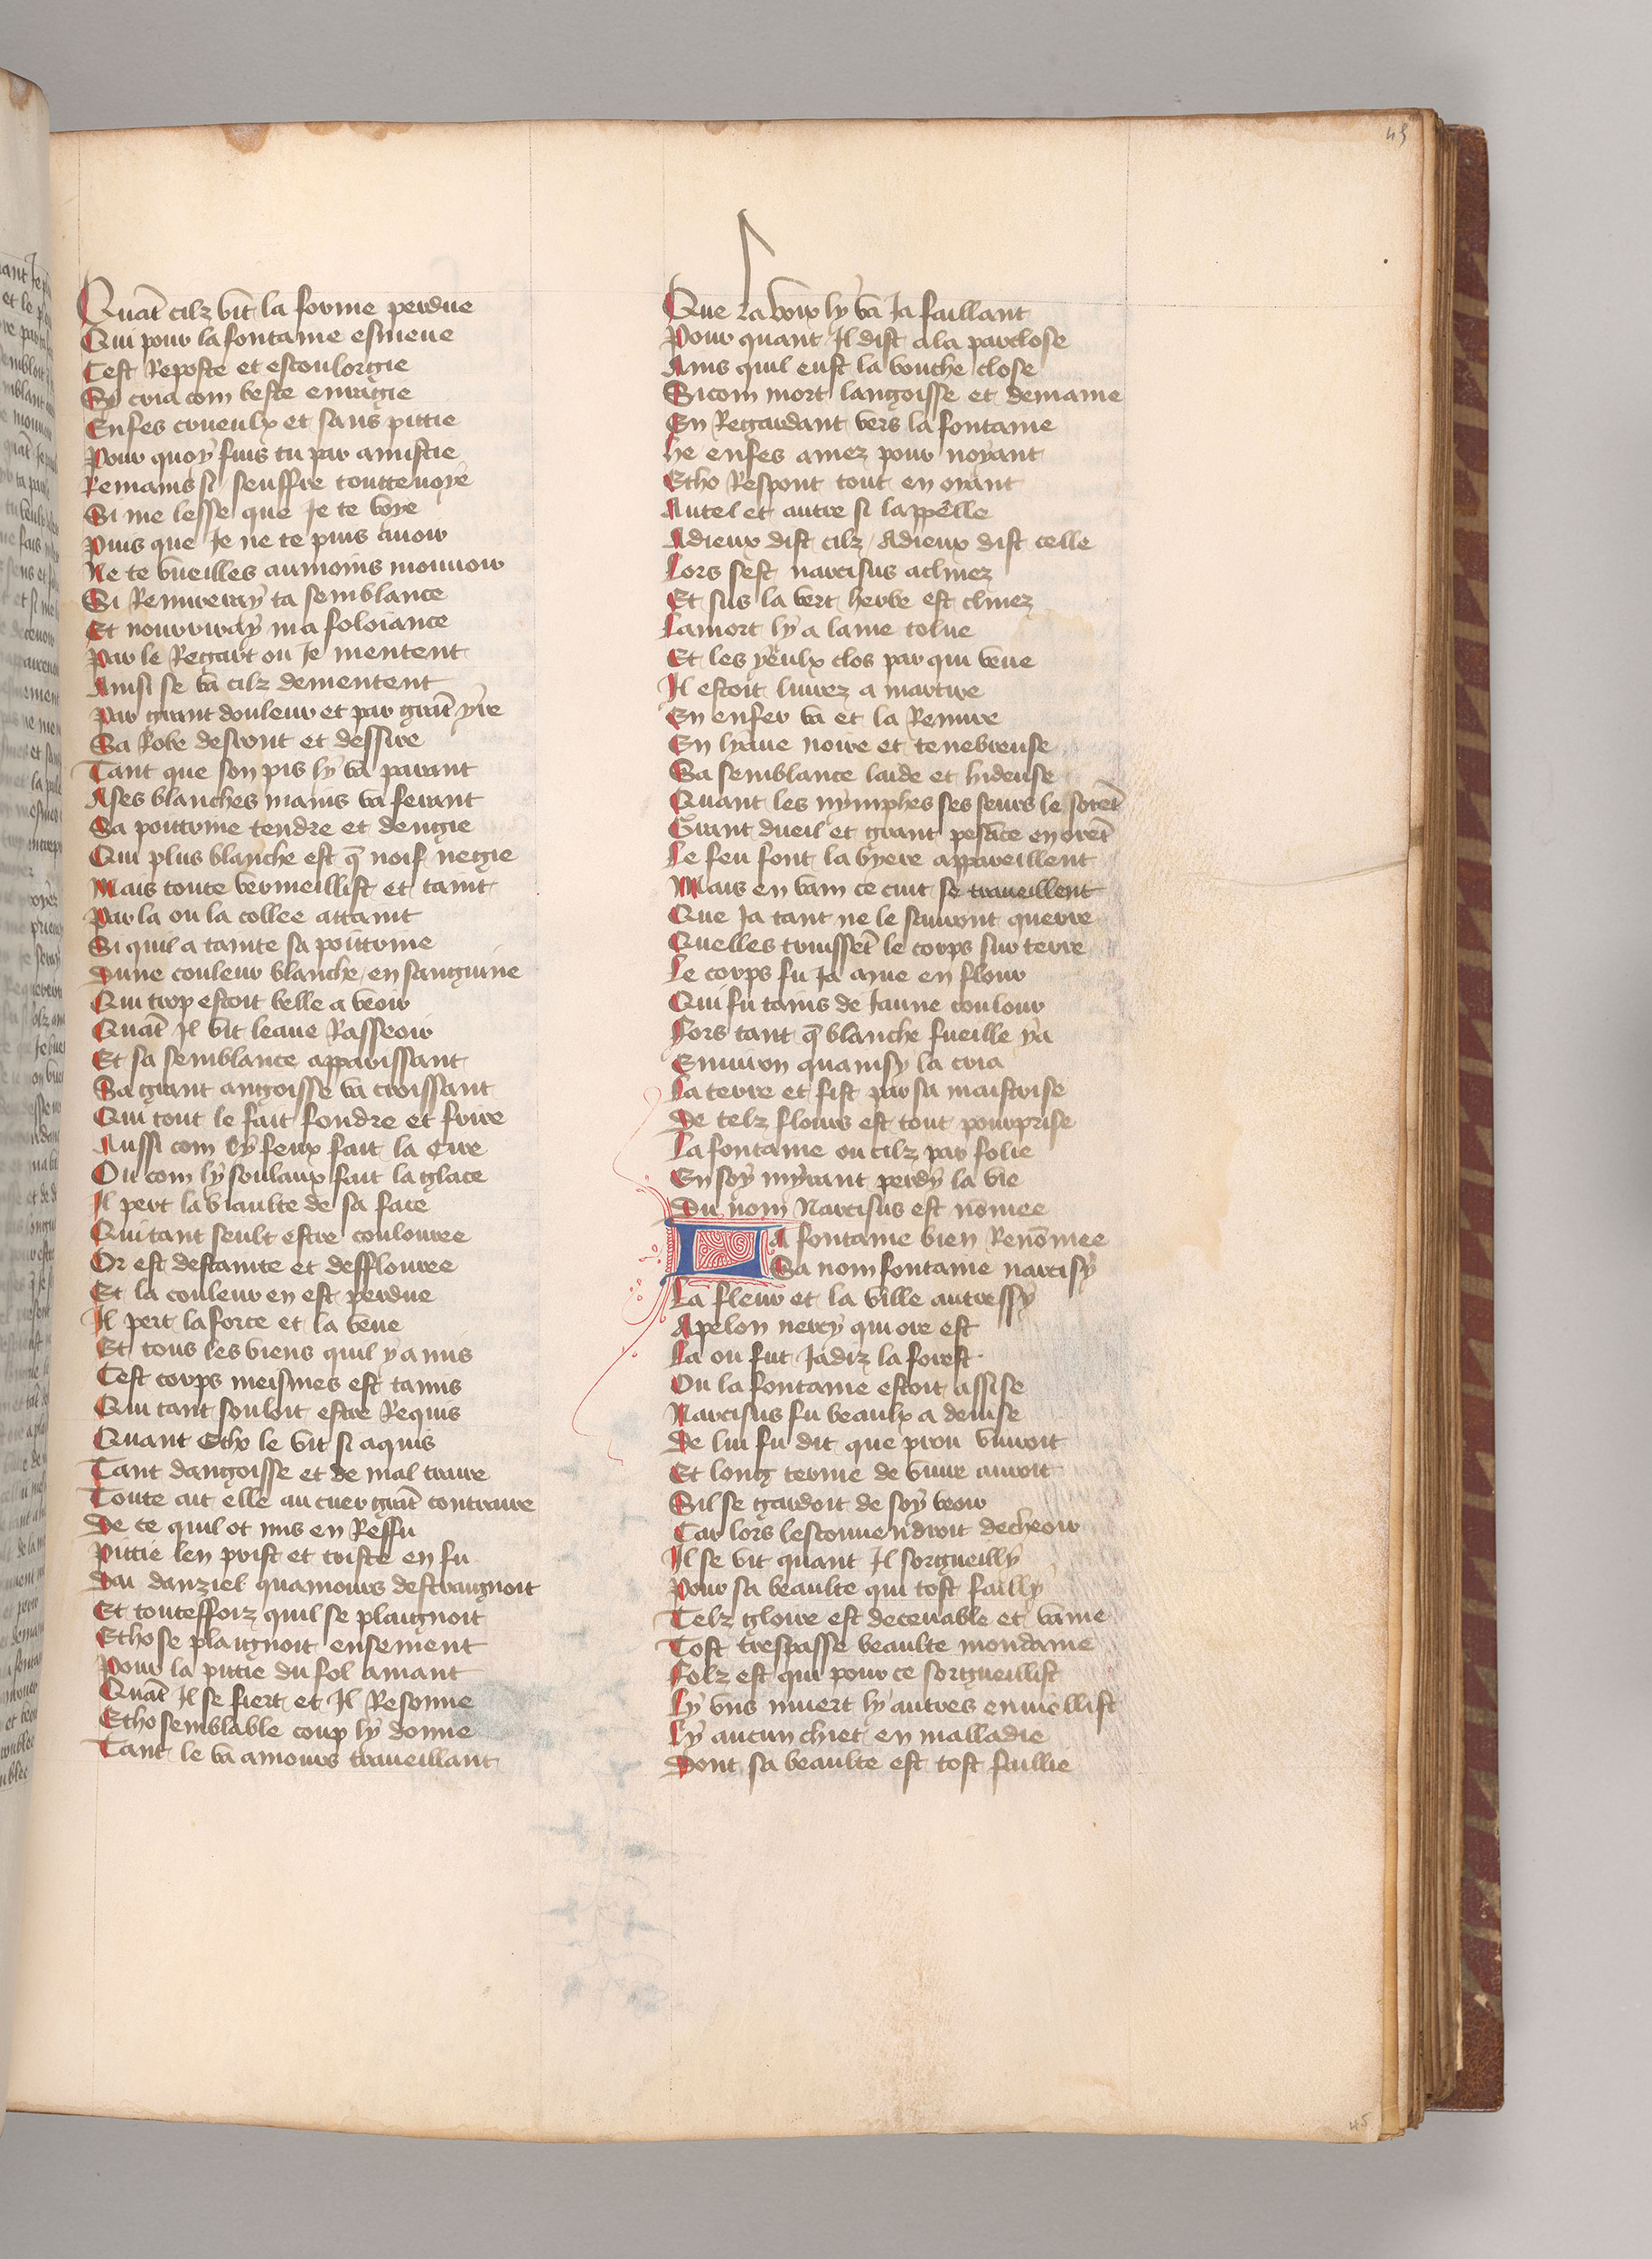 45
Quãt cilz vit la forme perdue
Qui pour la fontaine esmeue
Cest Reposte et escoulorgie
Se cria com beste enragie
Enfes crueulx et sans pittie
Pour quoy fuis tu par amistie
Remains si seuffre touttevoye
Si me lesse que Je te voye
Puis que Je ne te puis avoir
Ne te vueilles aumoins mouvoir
Si Remireray ta semblance
Et nourriray ma foloiance
Par le Regart ou Je mentent
Ainsi se va cilz dementent
Par grant douleur et par grãt yre
Sa Robe desront et dessire
Tant que son pis ly va parant
A ses blanches mains va ferant
Sa poittrine tendre et deugie
Qui plus blanche est q̃ noif negie
Mais toute vermeillist et taint
Par la ou la collee attaint
Si quil a tainte sa poittrine
Dune couleur blanche en sanguine
Qui trop estoit belle a veoir
Quãt Il vit leaue Rasseoir
Et sa semblance apparissant
Sa grant angoisse va croissant
Qui tout le fait fondre et frire
Aussi com ly feux fait la Cire
Ou com ly soulaux fait la glace
Il pert la biaulte de sa face
Qui tant seult estre coulouree
Or est destainte et defflouree
Et la couleur en est perdue
Il pert la force et la veue
Et tous les biens quil y a mis
Cest corps meismes est tainis
Qui tant souloit estre Requis
Quant Etho le vit si aquis
Tant dangoisse et de mal traire
Toute ait elle au cuer grãt contraire
De ce quil ot mis en Reffu
Pittie len prist et triste en fu
Dou danziel quamours destraignoit
Et touteffoiz quil se plaignoit
Etho se plaignoit ensement
Pour la pittie du fol amant
Quãt Il se fiert et Il Resonne
Etho semblable coup ly donne
Tant le va amours traveillant
Que la voix ly va Ja faillant
Pour quant Il dist a la parclose
Ains quil eust la bouche close
Sicom mort langoisse et demaine
En Regardant vers la fontaine
he enfes amez pour noyant
Etho Respont tout en oiant
Autel et autre si lappelle
Adieux dist cilz Adieux dist celle
Lors sest narcisus aclinez
Et sus la vert herbe est clinez
La mort ly a lame tolue
Et les yeulx clos par qui veue
Il estoit livrez a martire
En enfer va et la Remire
En lyaue noire et tenebreuse
Sa semblance laide et hideuse
Quant les nymphes ses seurs le sorẽt
Grant dueil et grant pesãce en orẽt
Le feu font la byere appareillent
Mais en vain ce cuit se traveillent
Que Ja tant ne le sauront querre
Quelles truissẽt le corps sur terre
Le corps fu Ja mue en flour
Qui fu tains de Jaune coulour
Fors tant q̃ blanche fueille y a
Environ quainsy la cria
La terre et fist par sa maistrise
De telz flours est tout pourprise
La fontaine ou cilz par folie
En soy myrant perdy la vie
Du nom Narcisus est nõmee
La fontaine bien Renõmee
Sa nom fontaine narcisy
La fleur et la ville autressy
Apelon nercy qui ore est
La ou fut Jadiz la forest
Ou la fontaine estoit assise
Narcisus fu beaulx a devise
De lui fu dit que prou vivroit
Et long terme de vivre auroit
Sil se gardoit de soy veoir
Car lors lesconvendroit decheoir
Il se vit quant Il sorgueilly
Pour sa beaulte qui tost failly
Telz gloire est decevable et vaine
Tost trespasse beaulte mondaine
Folz est qui pour ce sorgueillist
Ly uns muert ly autres envieillist
Ly aucun chiet en malladie
Dont sa beaulte est tost faillie
45